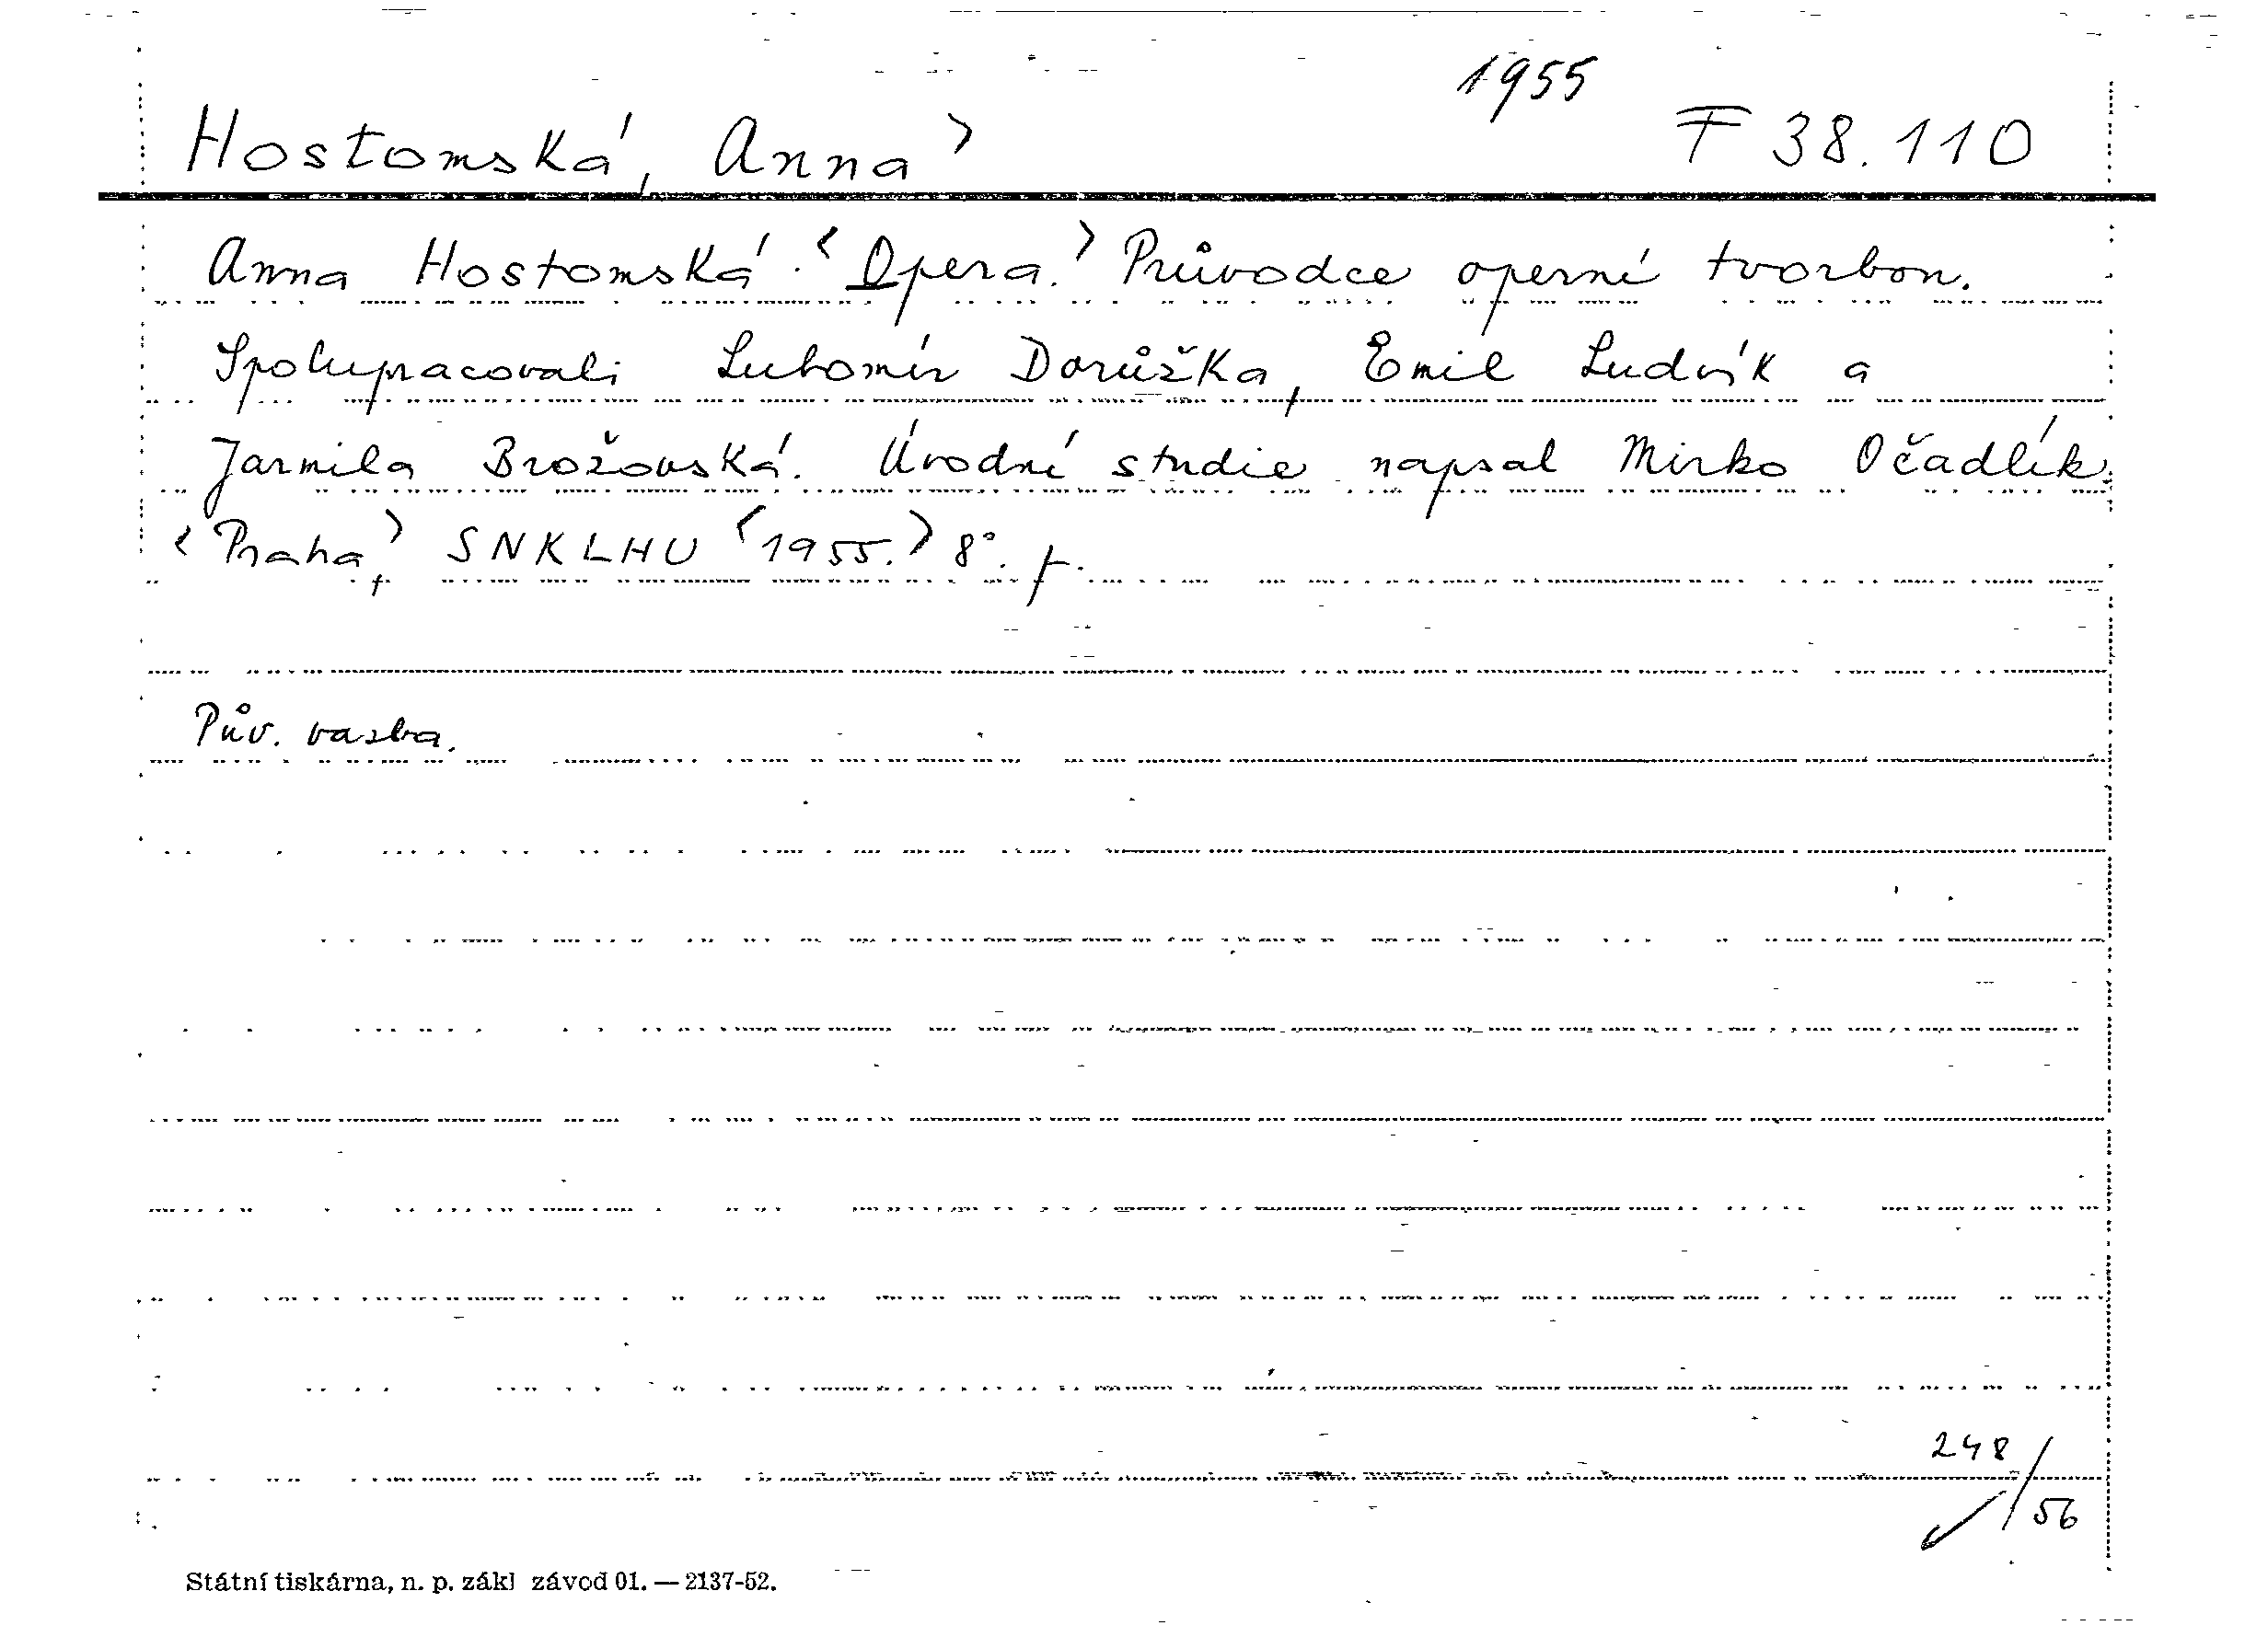 1955
Hostomská, Anna> F 38.110
Anna Hostomská. <Opera.> Průvodce operní tvorbou.
Spolupracovali Lubomír Dorůžka, Emil Ludvík a
Jarmila Brožovská. Úvodní studie napsal Mirko Očadlík.
<Praha,> SNKLHU <1955.> 8°. f.
Pův. vazba.
248/56
Státní tiskárna, n. p. zákl závod 01. — 2137-52.